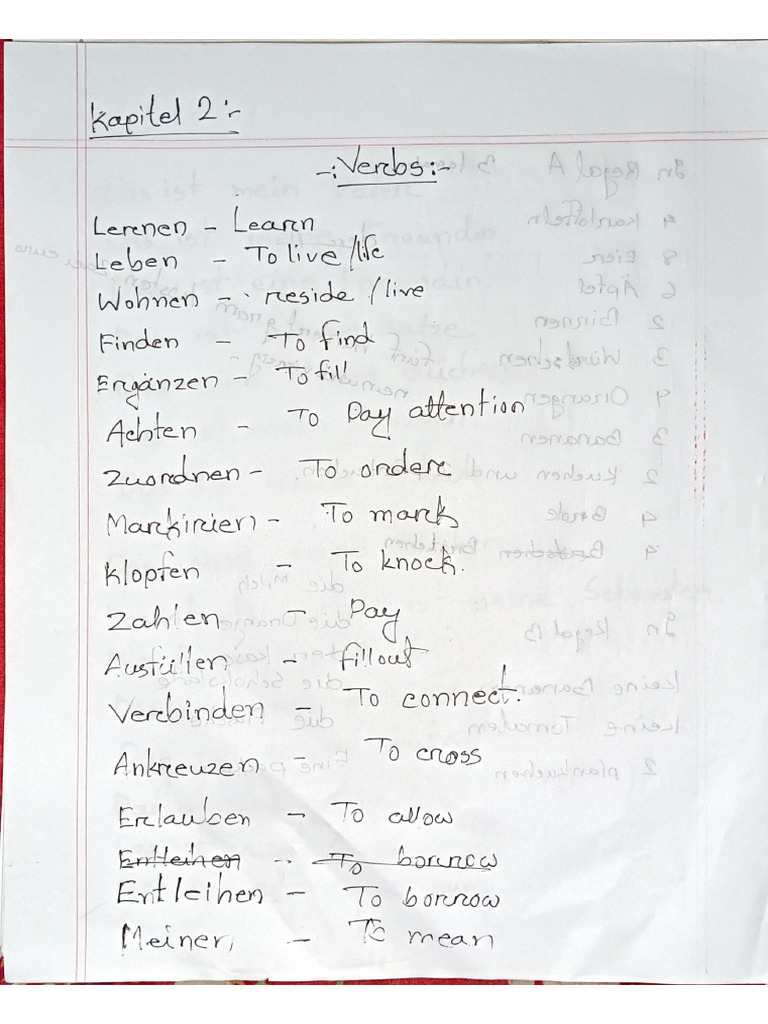 Kapitel 2:-
-: Verbs :-
Lernen - Learn
Leben - To live/life
Wohnen - reside/live
Finden - To find
Ergänzen - To fill
Achten - To Pay attention
Zuordnen - To order
Markirien - To mark
Klopfen - To knock.
Zahlen - Pay
Ausfüllen - fillout
Verbinden - To connect.
Ankreuzen - To cross
Erlauben - To allow
Entleihen - To borrow
Entleihen - To borrow
Meinen - To mean